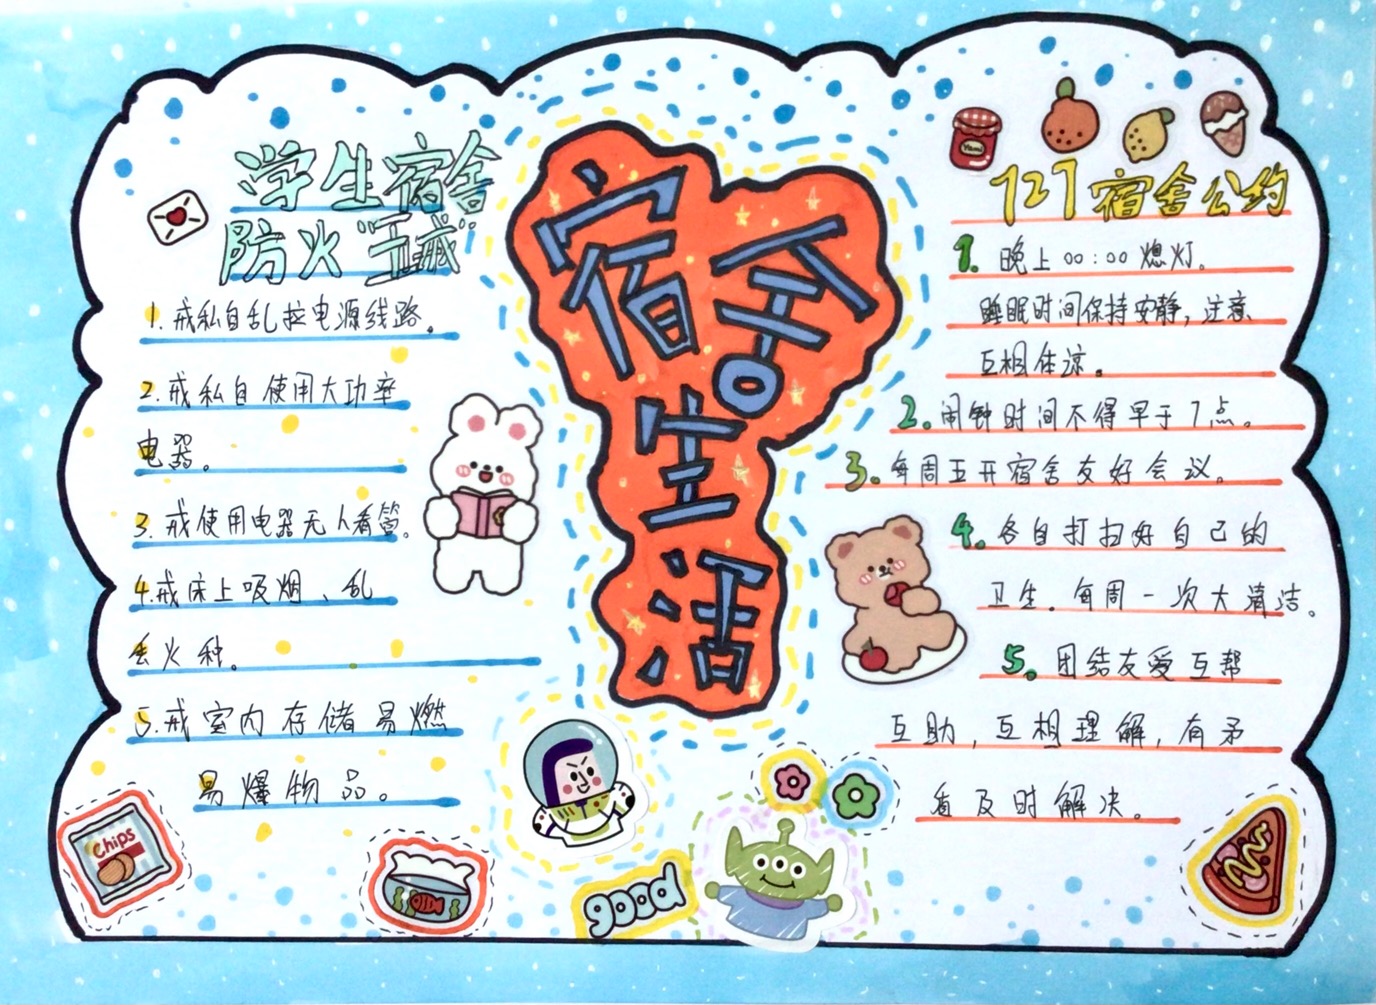 学生宿舍
防火"五戒"
1.戒私自乱拉电源线路。
2.戒私自使用大功率
电器。
3.戒使用电器无人看管。
4.戒床上吸烟、乱
丢火种。
5.戒室内存储易燃
易爆物品。
宿舍
生活
Yami
727宿舍公约
1.晚上00:00熄灯。
睡眠时间保持安静,注意
互相体谅。
2.闹钟时间不得早于7点。
3.每周五开宿舍友好会议。
4.各自打扫好自己的
卫生.每周一次大清洁。
5.团结友爱互帮
互助,互相理解,有矛
盾及时解决。
Chips
good